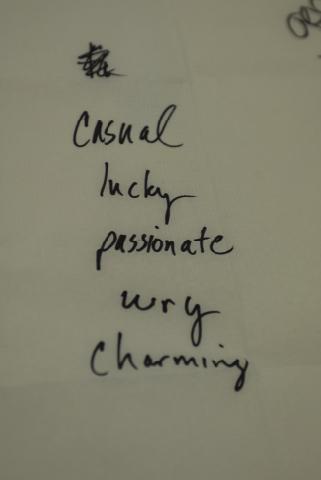 casual
lucky
passionate
wry
charming